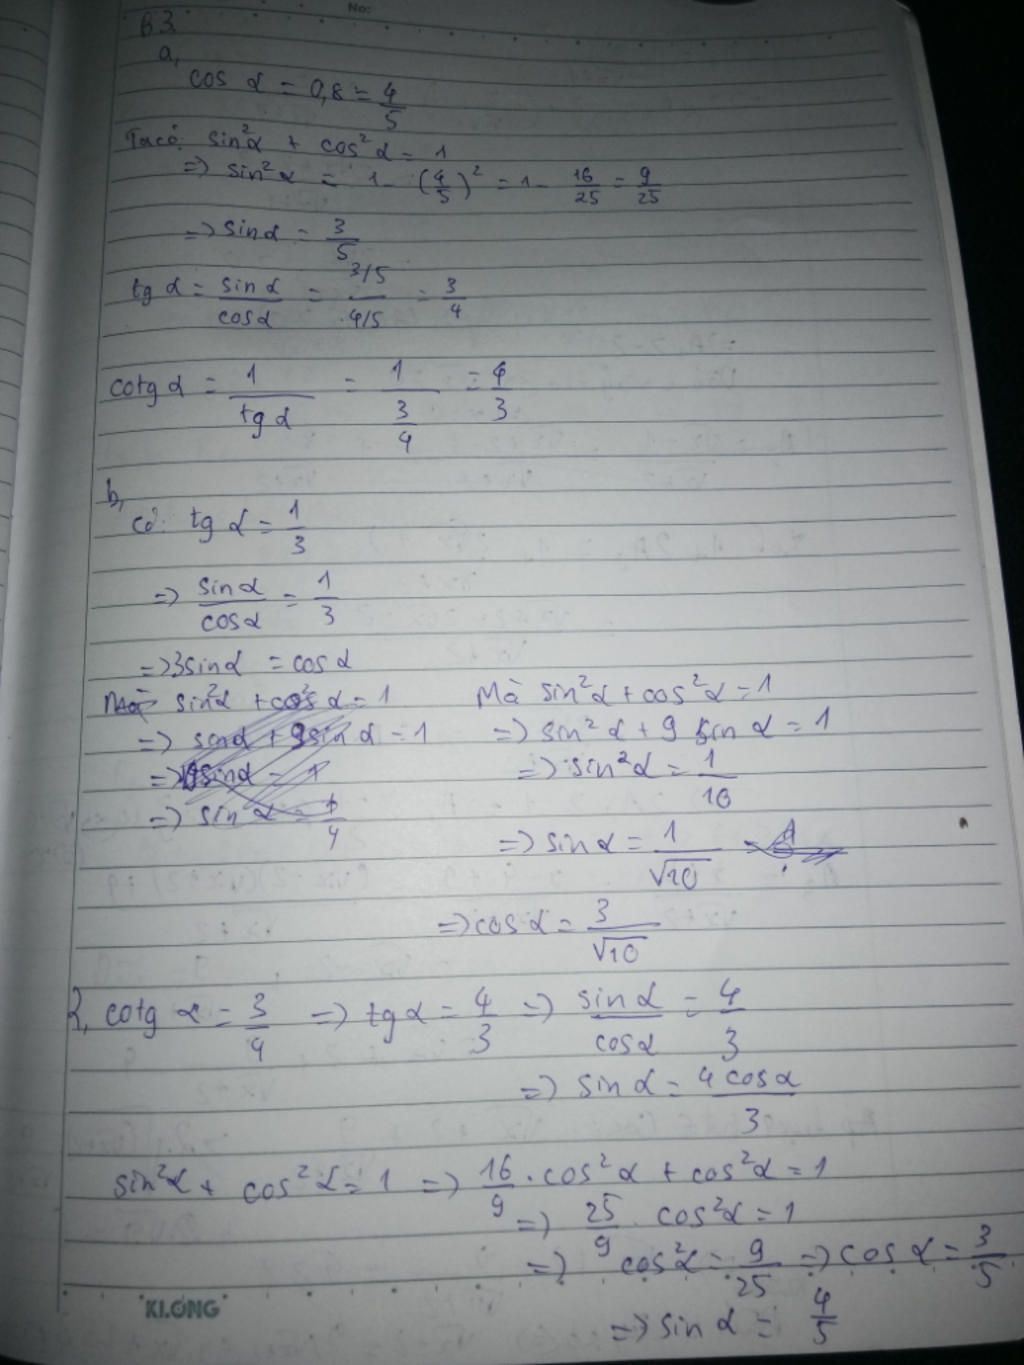 No:
B3
a,
cos α = 0,8 = 4/5
Ta có: sin²α + cos²α = 1
=> sin²α = 1 - (4/5)² = 1 - 16/25 = 9/25
=> sin α = 3/5
tg α = sin α/cos α = 3/5/4/5 = 3/4
cotg α = 1/tg α = 1/(3/4) = 4/3
b,
Có: tg α = 1/3
=> sin α/cos α = 1/3
=> 3sin α = cos α
sin²α + cos²α = 1
=> sin α + 9sin α = 1
=> sin α = 1
=> sin α = 1/4
Mà sin²α + cos²α = 1
=> sin²α + 9 sin α = 1
=> sin²α = 1/10
=> sin α = 1/√10
=> cos α = 3/√10
cotg α = 3/4 => tg α = 4/3 => sin α/cos α = 4/3
=> sin α = 4 cos α/3
sin²α + cos²α = 1 => 16/9 . cos²α + cos²α = 1
=> 25/9 . cos²α = 1
=> cos²α = 9/25 => cos α = 3/5
=> sin α = 4/5
KLONG